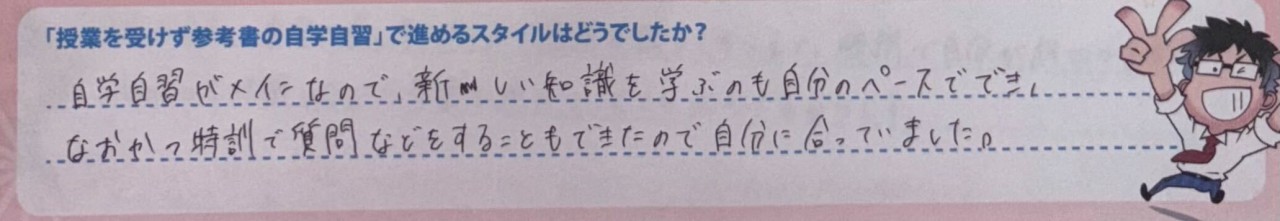 「授業を受けず参考書の自学自習」で進めるスタイルはどうでしたか？
自学自習がメインなので、新しい知識を学ぶのも自分のペースででき、
なおかつ特訓で質問などをすることもできたので自分に合っていました。